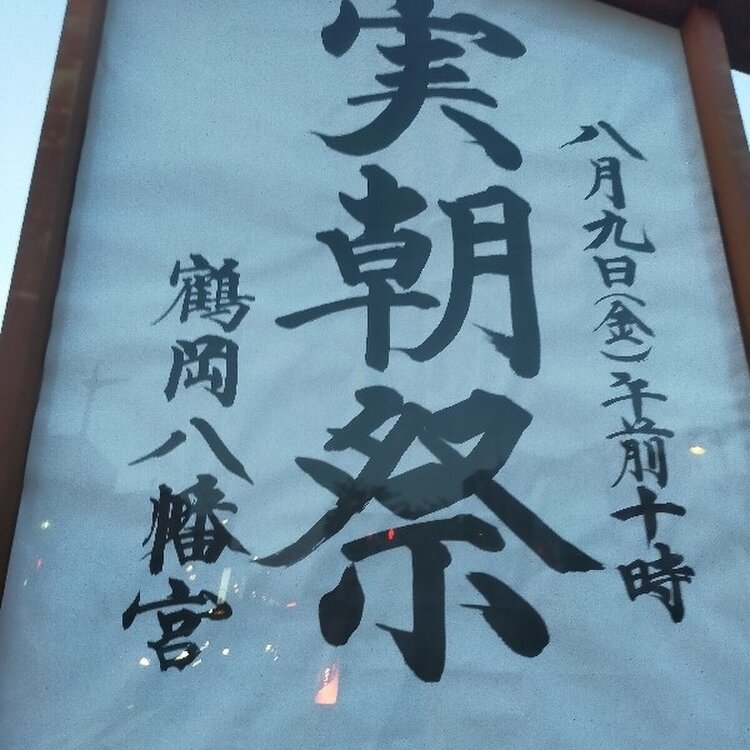 八月九日(金)午前十時
実朝祭
鶴岡八幡宮